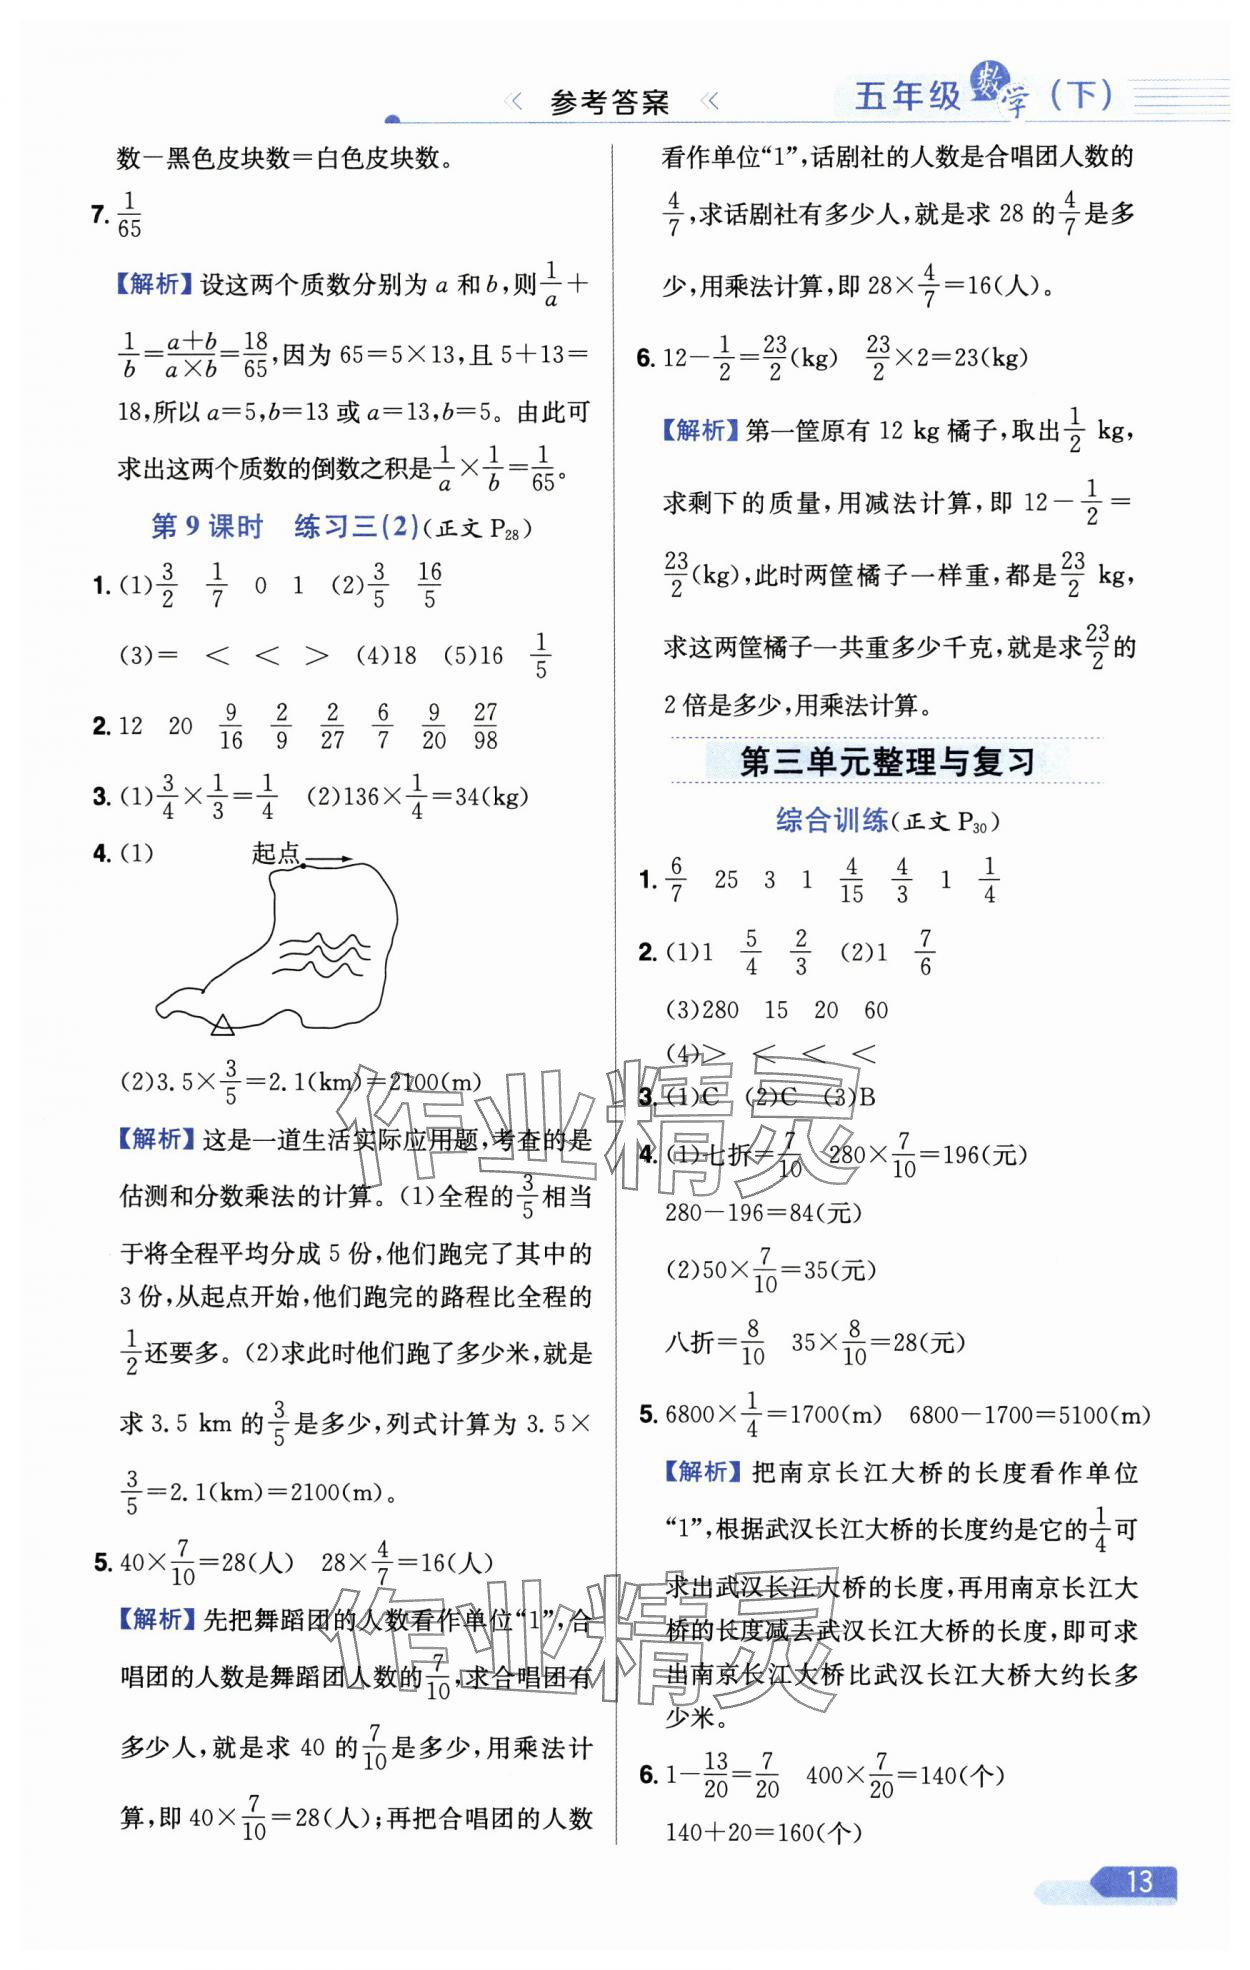 参考答案
五年级数学(下)
数－黑色皮块数＝白色皮块数。
7. 1/65
【解析】设这两个质数分别为 a 和 b,则 1/a＋
1/b＝(a＋b)/(a×b)＝18/65,因为 65＝5×13,且 5＋13＝
18,所以 a＝5,b＝13 或 a＝13,b＝5。由此可
求出这两个质数的倒数之积是 1/a×1/b＝1/65。
第 9 课时 练习三(2)(正文 P28)
1. (1)3/2 1/7 0 1 (2)3/5 16/5
(3)＝ ＜ ＜ ＞ (4)18 (5)16 1/5
2. 12 20 9/16 2/9 2/27 6/7 9/20 27/98
3. (1)3/4×1/3＝1/4 (2)136×1/4＝34(kg)
4. (1)
起点
(2)3.5×3/5＝2.1(km)＝2100(m)
【解析】这是一道生活实际应用题,考查的是
估测和分数乘法的计算。(1)全程的3/5相当
于将全程平均分成 5 份,他们跑完了其中的
3 份,从起点开始,他们跑完的路程比全程的
1/2还要多。(2)求此时他们跑了多少米,就是
求 3.5 km 的3/5是多少,列式计算为 3.5×
3/5＝2.1(km)＝2100(m)。
5. 40×7/10＝28(人) 28×4/7＝16(人)
【解析】先把舞蹈团的人数看作单位“1”,合
唱团的人数是舞蹈团人数的7/10,求合唱团有
多少人,就是求 40 的7/10是多少,用乘法计
算,即 40×7/10＝28(人);再把合唱团的人数
看作单位“1”,话剧社的人数是合唱团人数的
4/7,求话剧社有多少人,就是求 28 的4/7是多
少,用乘法计算,即 28×4/7＝16(人)。
6. 12－1/2＝23/2(kg) 23/2×2＝23(kg)
【解析】第一筐原有 12 kg 橘子,取出1/2 kg,
求剩下的质量,用减法计算,即 12－1/2＝
23/2(kg),此时两筐橘子一样重,都是23/2 kg,
求这两筐橘子一共重多少千克,就是求23/2的
2 倍是多少,用乘法计算。
第三单元整理与复习
综合训练(正文 P30)
1. 6/7 25 3 1 4/15 4/3 1 1/4
2. (1)1 5/4 2/3 (2)1 7/6
(3)280 15 20 60
(4)＞ ＜ ＜ ＜
3. (1)C (2)C (3)B
4. (1)七折＝7/10 280×7/10＝196(元)
280－196＝84(元)
(2)50×7/10＝35(元)
八折＝8/10 35×8/10＝28(元)
5. 6800×1/4＝1700(m) 6800－1700＝5100(m)
【解析】把南京长江大桥的长度看作单位
“1”,根据武汉长江大桥的长度约是它的1/4可
求出武汉长江大桥的长度,再用南京长江大
桥的长度减去武汉长江大桥的长度,即可求
出南京长江大桥比武汉长江大桥大约长多
少米。
6. 1－13/20＝7/20 400×7/20＝140(个)
140＋20＝160(个)
作业精灵
作业精灵
13